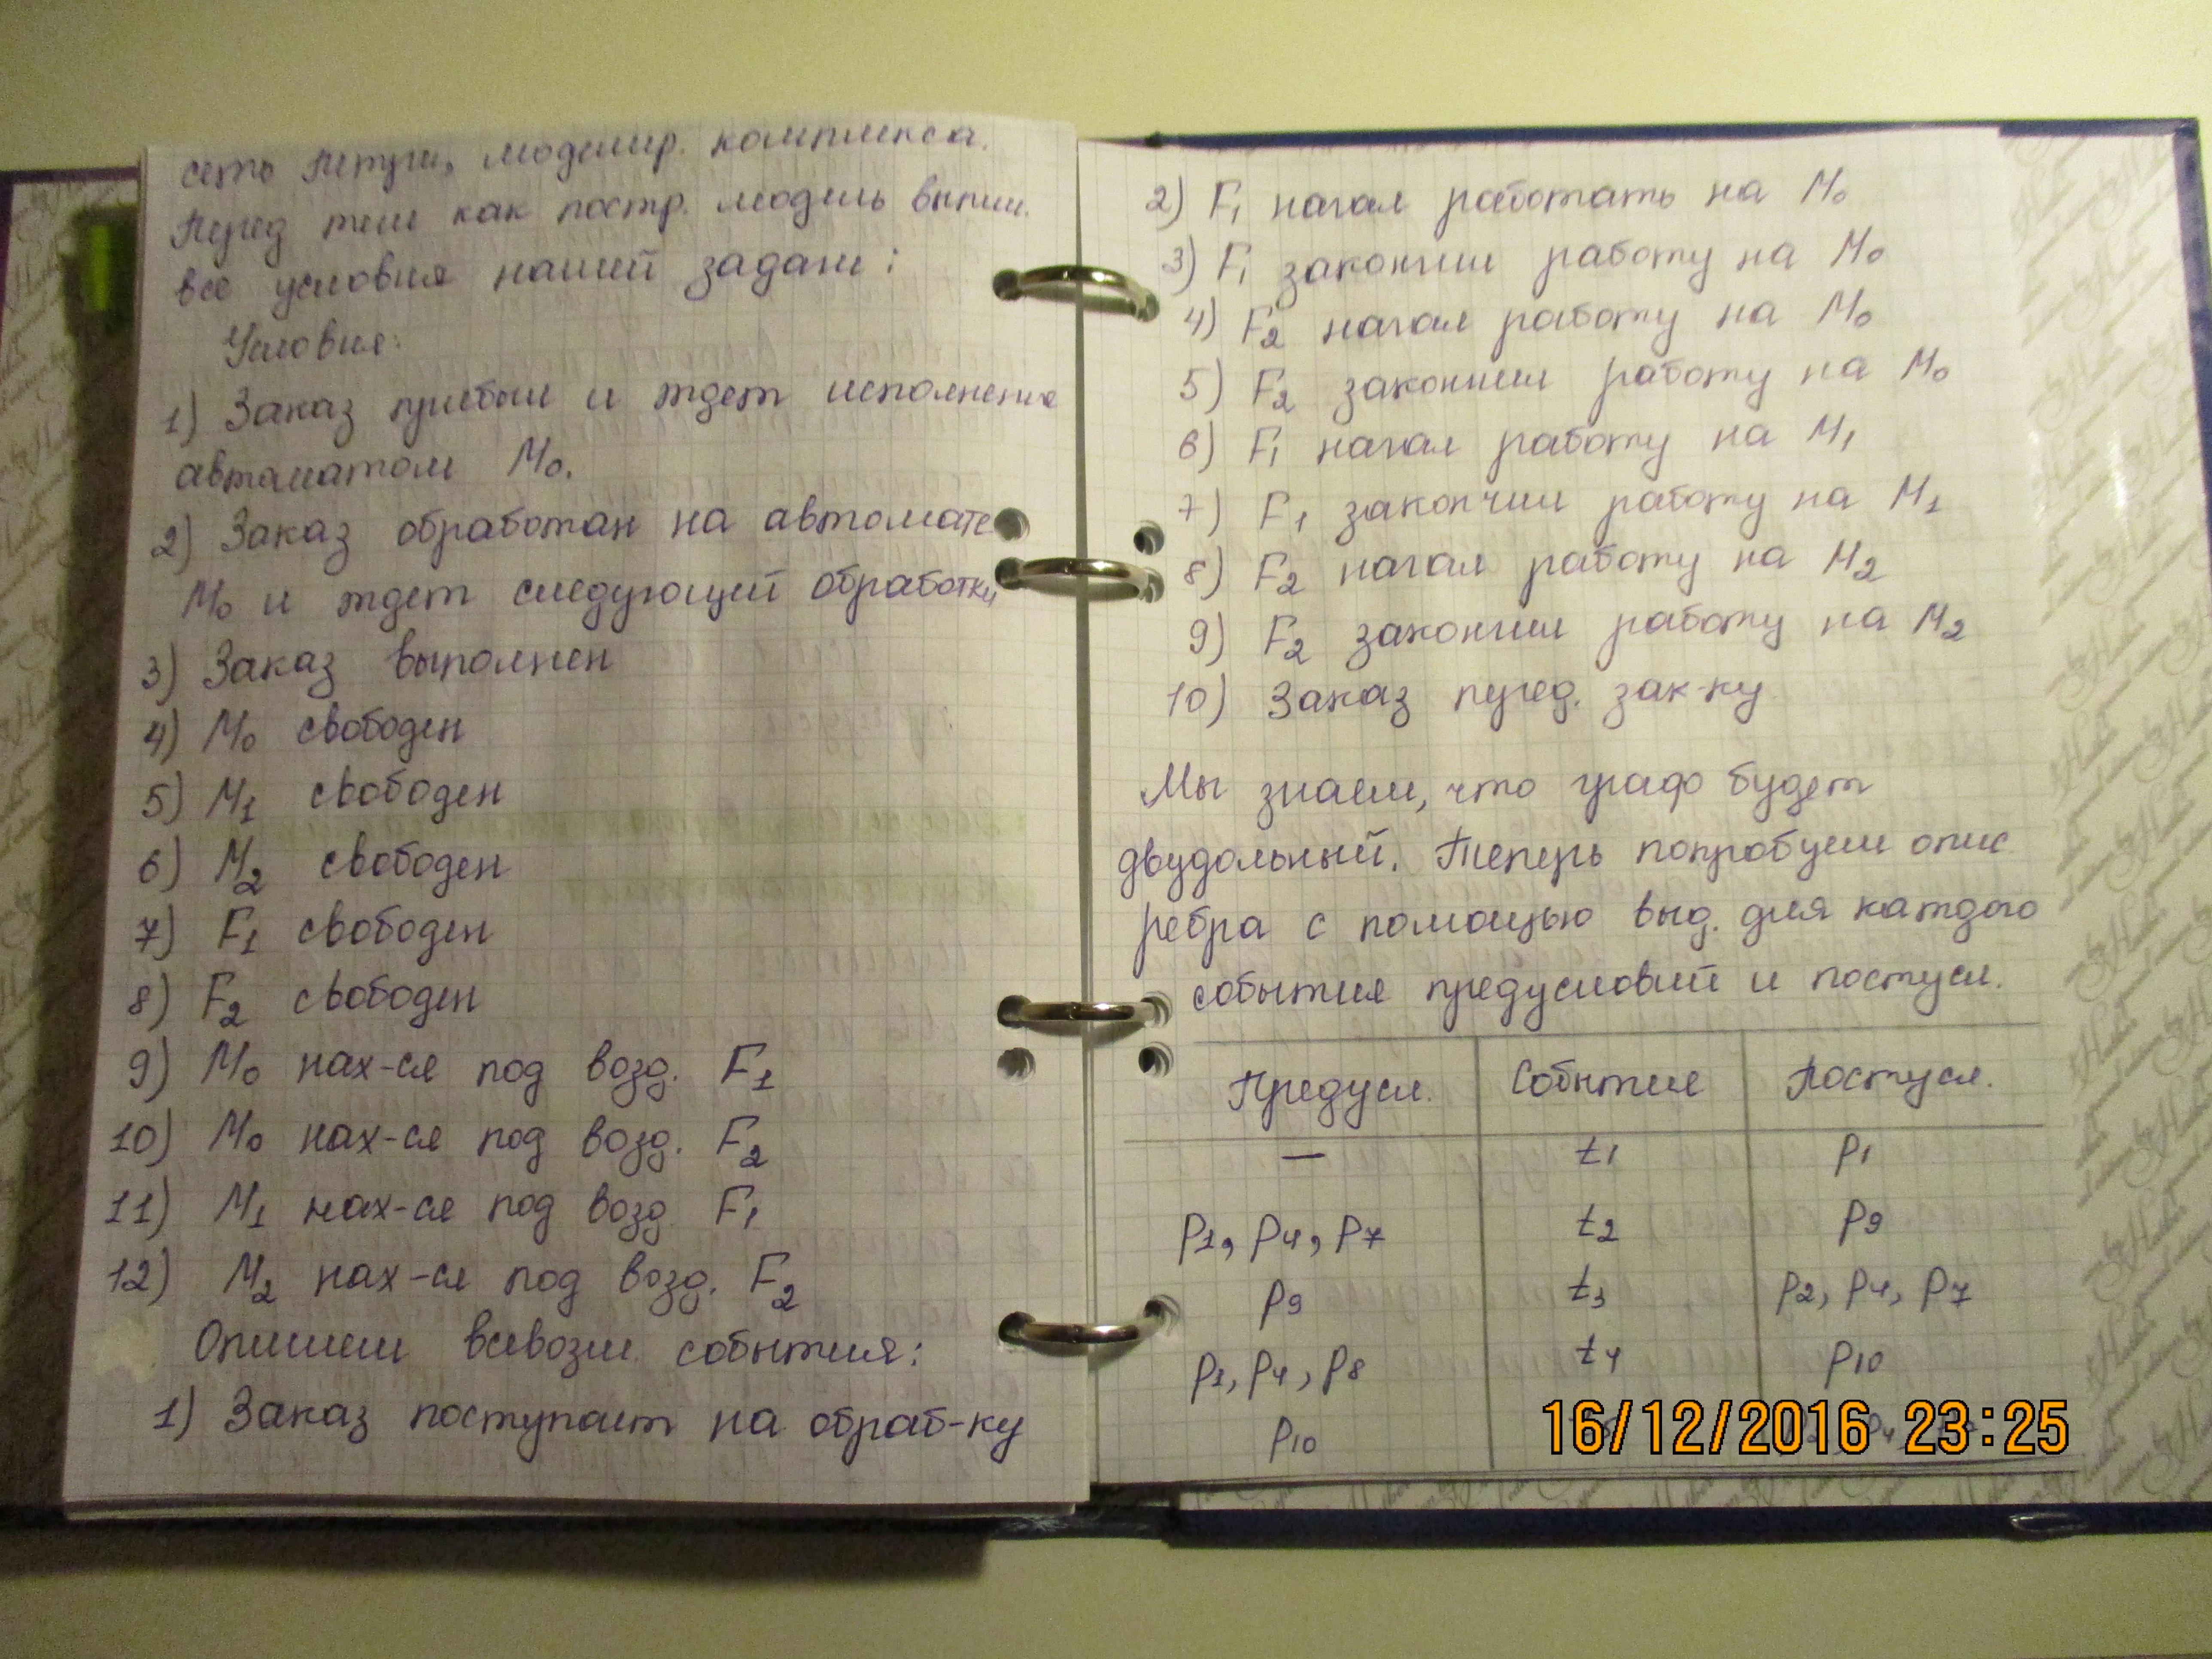 сеть Петри, моделир. комплекса.
Перед тем как постр. модель выпиш.
все условия нашей задачи:
Условия:
1) Заказ прибыл и ждет исполнения
автоматом M₀.
2) Заказ обработан на автомате
M₀ и ждет следующей обработки
3) Заказ выполнен
4) M₀ свободен
5) M₁ свободен
6) M₂ свободен
7) F₁ свободен
8) F₂ свободен
9) M₀ нах-ся под возд. F₁
10) M₀ нах-ся под возд. F₂
11) M₁ нах-ся под возд. F₁
12) M₂ нах-ся под возд. F₂
Опишем всевозм. события:
1) Заказ поступает на обраб-ку
2) F₁ начал работать на M₀
3) F₁ закончил работу на M₀
4) F₂ начал работу на M₀
5) F₂ закончил работу на M₀
6) F₁ начал работу на M₁
7) F₁ закончил работу на M₁
8) F₂ начал работу на M₂
9) F₂ закончил работу на M₂
10) Заказ перед. зак-ку
Мы знаем, что граф будет
двудольный. Теперь попробуем опис
ребра с помощью выд. для каждого
события предусловий и постусл.
Предусл. Событие Постусл.
— t₁ p₁
p₁, p₄, p₇ t₂ p₉
p₉ t₃ p₂, p₄, p₇
p₁, p₄, p₈ t₄ p₁₀
p₁₀
16/12/2016 23:25